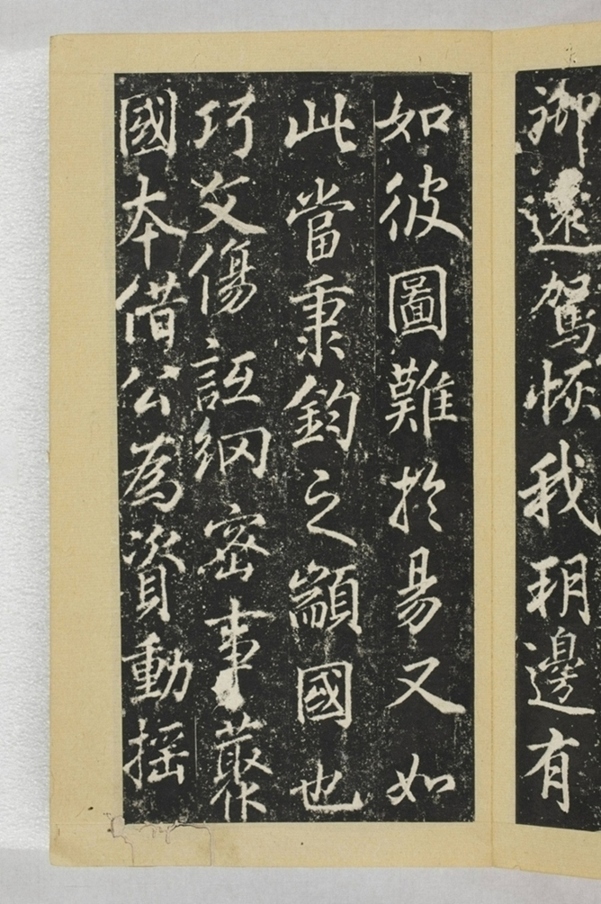 御遠駕恢我朔邊有
如彼圖難於易又如
此當秉鈞之顓國也
巧文傷詆網密事藂
國本借公為資動搖